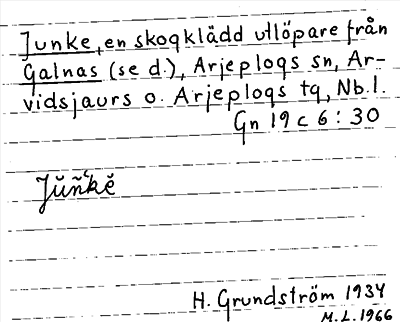 Junke, en skogklädd utlöpare från
Galnas (se d.), Arjeplogs sn, Ar-
vidsjaurs o. Arjeplogs tg, Nb.l.
Gn 19 c 6 : 30
Jŭñ́kĕ
H. Grundström 1934
M.L. 1966